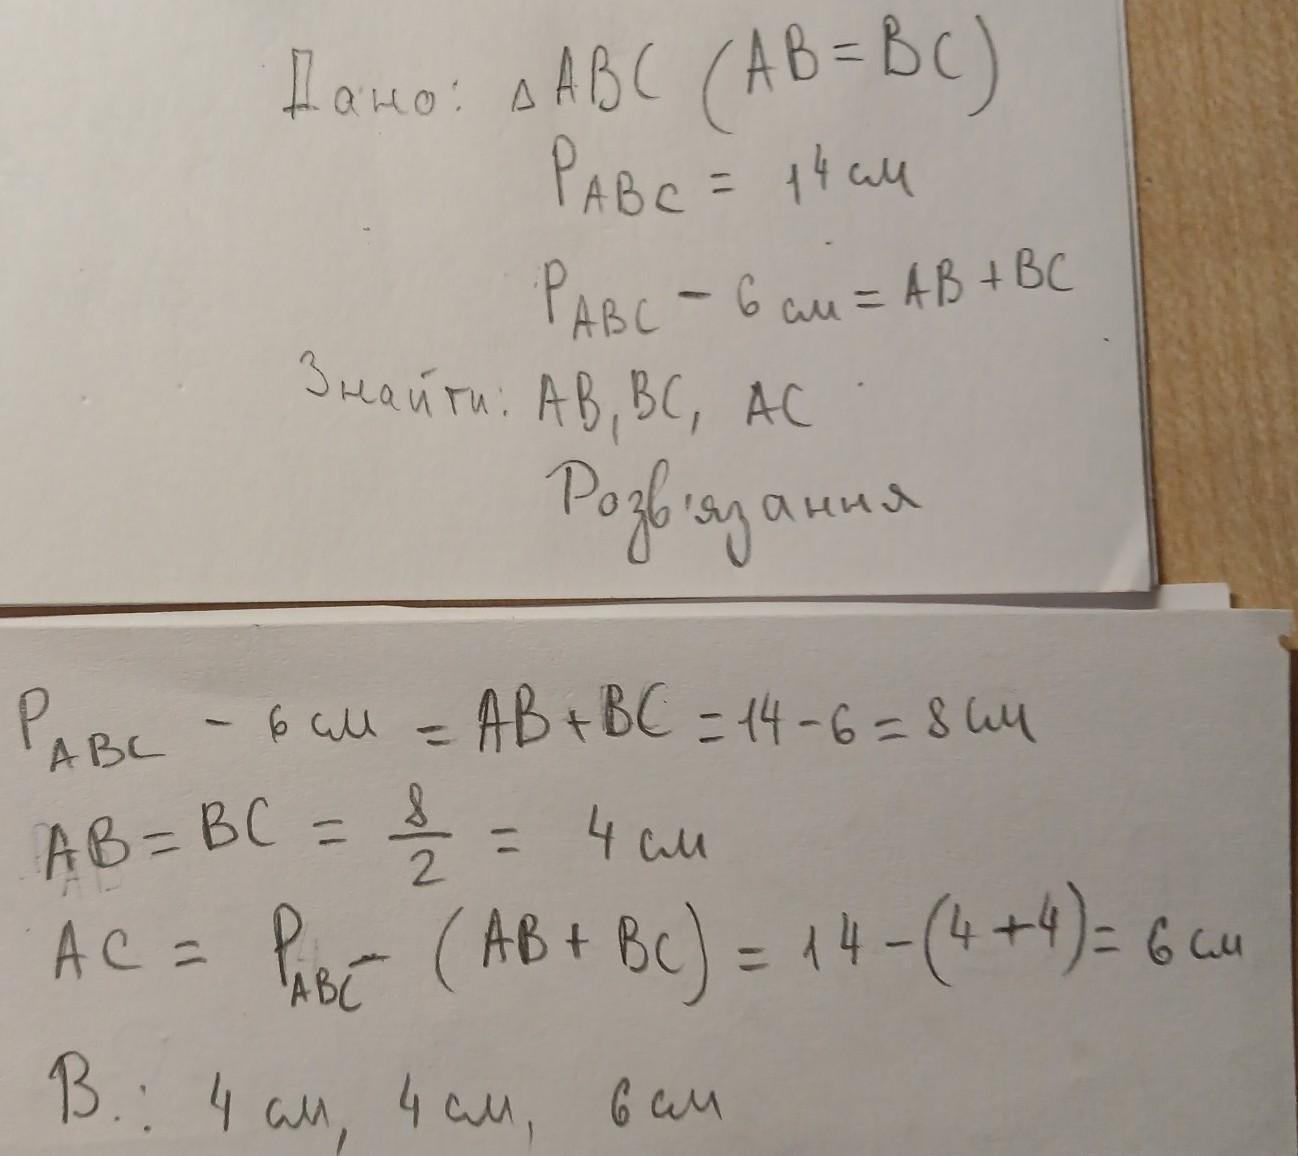 Дано: △ ABC (AB = BC)
P_ABC = 14 см
P_ABC - 6 см = AB + BC
Знайти: AB, BC, AC
Розв'язання
P_ABC - 6 см = AB + BC = 14 - 6 = 8 см
AB = BC = 8/2 = 4 см
AC = P_ABC - (AB + BC) = 14 - (4 + 4) = 6 см
В.: 4 см, 4 см, 6 см